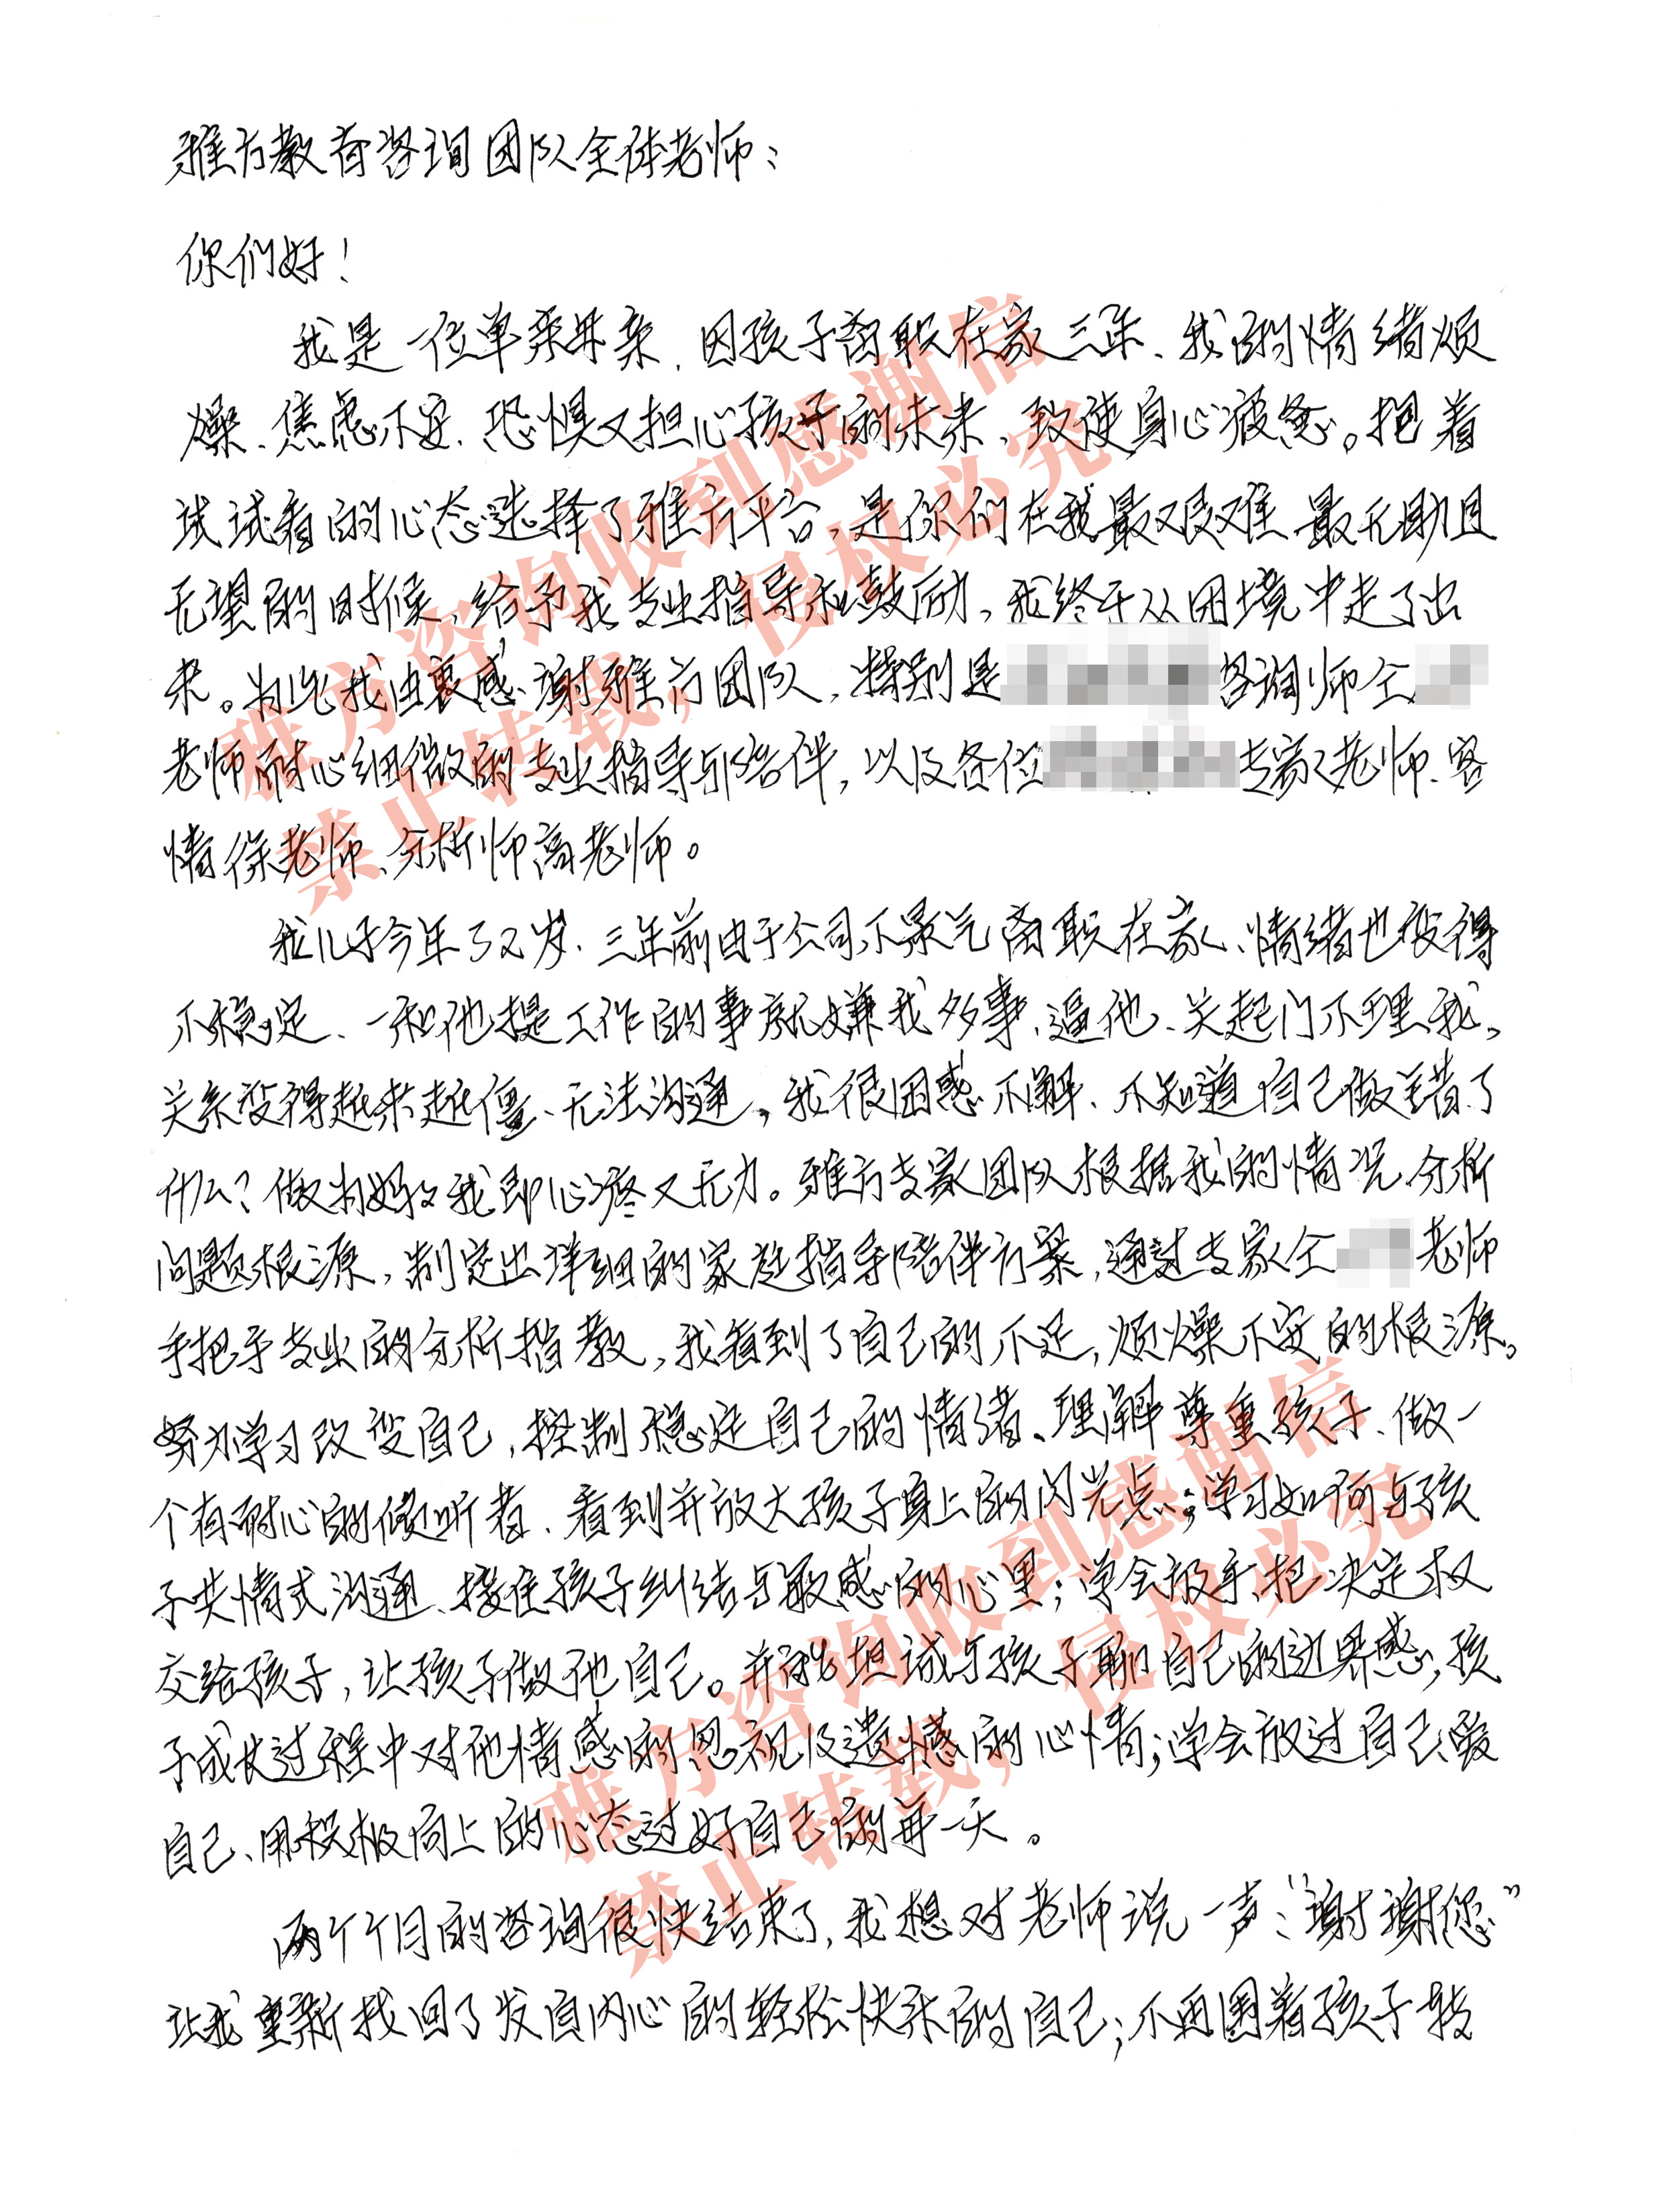 雅方教育咨询团队全体老师：
你们好！
我是一位单亲母亲，因孩子离职在家三年、我的情绪烦
燥、焦虑不安、恐惧又担心孩子的未来、致使身心疲惫。抱着
试试看的心态选择了雅方平台，是你们在我最艰难最无助且
无望的时候，给予我专业指导和鼓励，我终于从困境中走了出
来。为此我由衷感谢雅方团队，特别是 咨询师仝
老师耐心细微的专业指导与陪伴，以及各位 专家老师、客
情徐老师、分析师高老师。
我儿子今年32岁、三年前由于公司不景气离职在家、情绪也变得
不稳定、一和他提工作的事就嫌我多事、逼他、关起门不理我。
关系变得越来越僵、无法沟通，我很困惑不解、不知道自己做错了
什么？做为妈妈我即心疼又无力。雅方专家团队根据我的情况分析
问题根源，制定出详细的家庭指导陪伴方案，通过专家仝 老师
手把手专业的分析指教，我看到了自己的不足，烦燥不安的根源。
努力学习改变自己，控制稳定自己的情绪、理解尊重孩子、做一
个有耐心的倾听者、看到并放大孩子身上的闪光点；学习如何与孩
子共情式沟通、接住孩子纠结与敏感的心里；学会放手，把决定权
交给孩子，让孩子做他自己。并能坦诚与孩子聊自己的边界感，孩
子成长过程中对他情感的忽视及遗憾的心情；学会放过自己、爱
自己、用积极向上的心态过好自己的每一天。
两个个月的咨询很快结束了，我想对老师说一声：“谢谢您”
让我重新找回了发自内心的轻松快乐的自己；不再围着孩子转
雅方咨询收到感谢信
禁止转载，侵权必究
雅方咨询收到感谢信
禁止转载，侵权必究